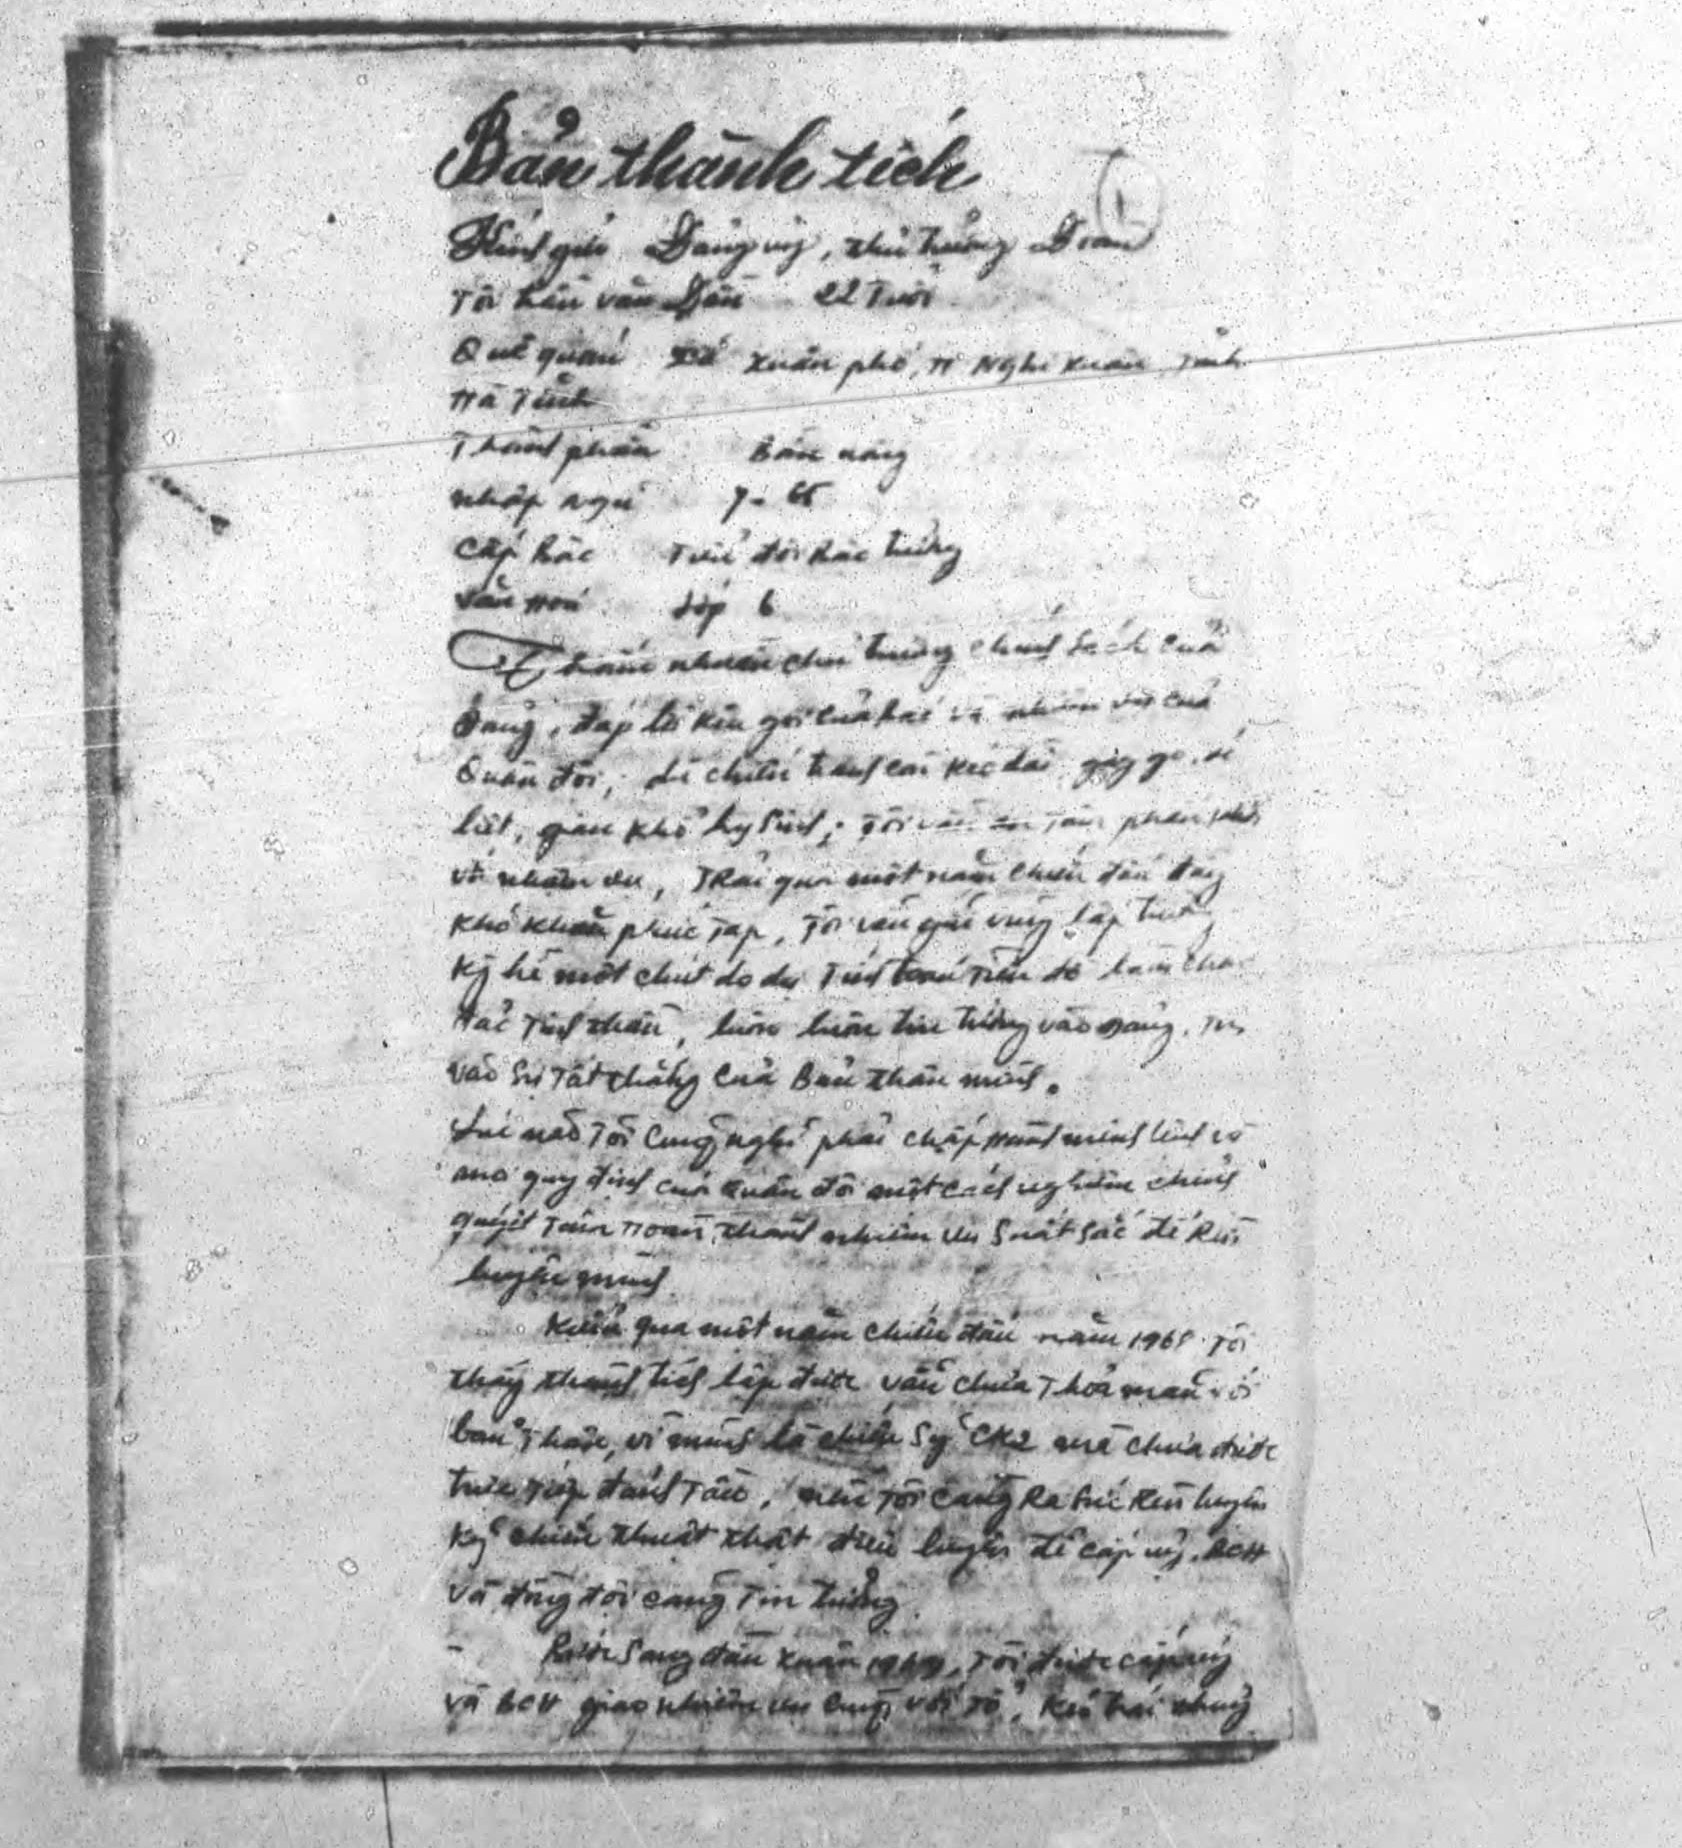 Bản thành tích
1
Kính gửi Đảng uỷ, thủ trưởng Đoàn
Tôi Trần văn Dần 22 Tuổi
Quê quán Xã Xuân phổ, H Nghi Xuân Tỉnh
Hà Tĩnh
Thành phần Bần nông
nhập ngũ 7-65
Cấp bậc Tiểu đội bậc trưởng
Văn Hoá Lớp 6
Thấm nhuần chủ trương chính sách của
Đảng, đáp lời kêu gọi của bác và nhiệm vụ của
Quân đội, dù chiến tranh còn kéo dài gay go, ác
liệt, gian khổ hy sinh; Tôi vẫn an Tâm phấn khởi
với nhiệm vụ, Trải qua một năm chiến đấu đầy
khó khăn phức Tạp, Tôi vẫn giữ vững lập trường
Kg hề một chút do dự Tính toán Tiền đồ làm cho
Hắc Tinh thần, luôn luôn tin tưởng vào Đảng, Tin
vào sự Tất thắng của Bản thân mình.
Lúc nào Tôi cũng nghĩ phải chấp hành mệnh lệnh và
mọi quy định của Quân đội một cách nghiêm chỉnh
quyết Tâm Hoàn thành nhiệm vụ suất sắc để Rèn
luyện mình
qua một năm chiến đấu năm 1968 Tôi
thấy thành tích lập được vẫn chưa Thoả mãn với
bản Thân, vì mình là chiến sỹ CK2 mà chưa được
trực Tiếp đánh Tàu, nên Tôi càng Ra sức Rèn luyện
Kỹ chiến thuật thật điêu luyện để cấp uỷ, BCH
và đồng đội càng Tin tưởng
- Bước Sang đầu Xuân 1969, Tôi được cấp uỷ
và BCH giao nhiệm vụ cùng với Tổ,